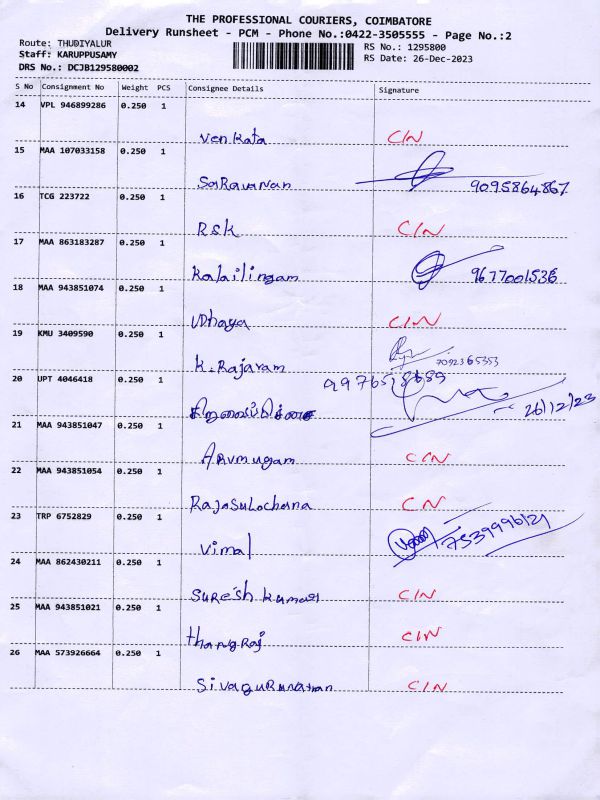 THE PROFESSIONAL COURIERS, COIMBATORE
Delivery Runsheet - PCM - Phone No.:0422-3505555 - Page No.:2
Route: THUDIYALUR
RS No.: 1295800
Staff: KARUPPUSAMY
RS Date: 26-Dec-2023
DRS No.: DCJB129580002
S No Consignment No Weight PCS Consignee Details Signature
14 VPL 946899286 0.250 1
Venkata C/N
15 MAA 107033158 0.250 1
Saravanan 9095864867
16 TCG 223722 0.250 1
RSK C/N
17 MAA 863183287 0.250 1
Kalailingam 9677001536
18 MAA 943851074 0.250 1
Udhaya C/N
19 KMU 3409590 0.250 1
K. Rajaram 7092365353
20 UPT 4046418 0.250 1
26/12/23
21 MAA 943851047 0.250 1
Arumugam C/N
22 MAA 943851054 0.250 1
Rajasulochana C/N
23 TRP 6752829 0.250 1
Vimal 7539996121
24 MAA 862430211 0.250 1
Suresh kumar C/N
25 MAA 943851021 0.250 1
thangraj C/N
26 MAA 573926664 0.250 1
Sivagurunathan C/N